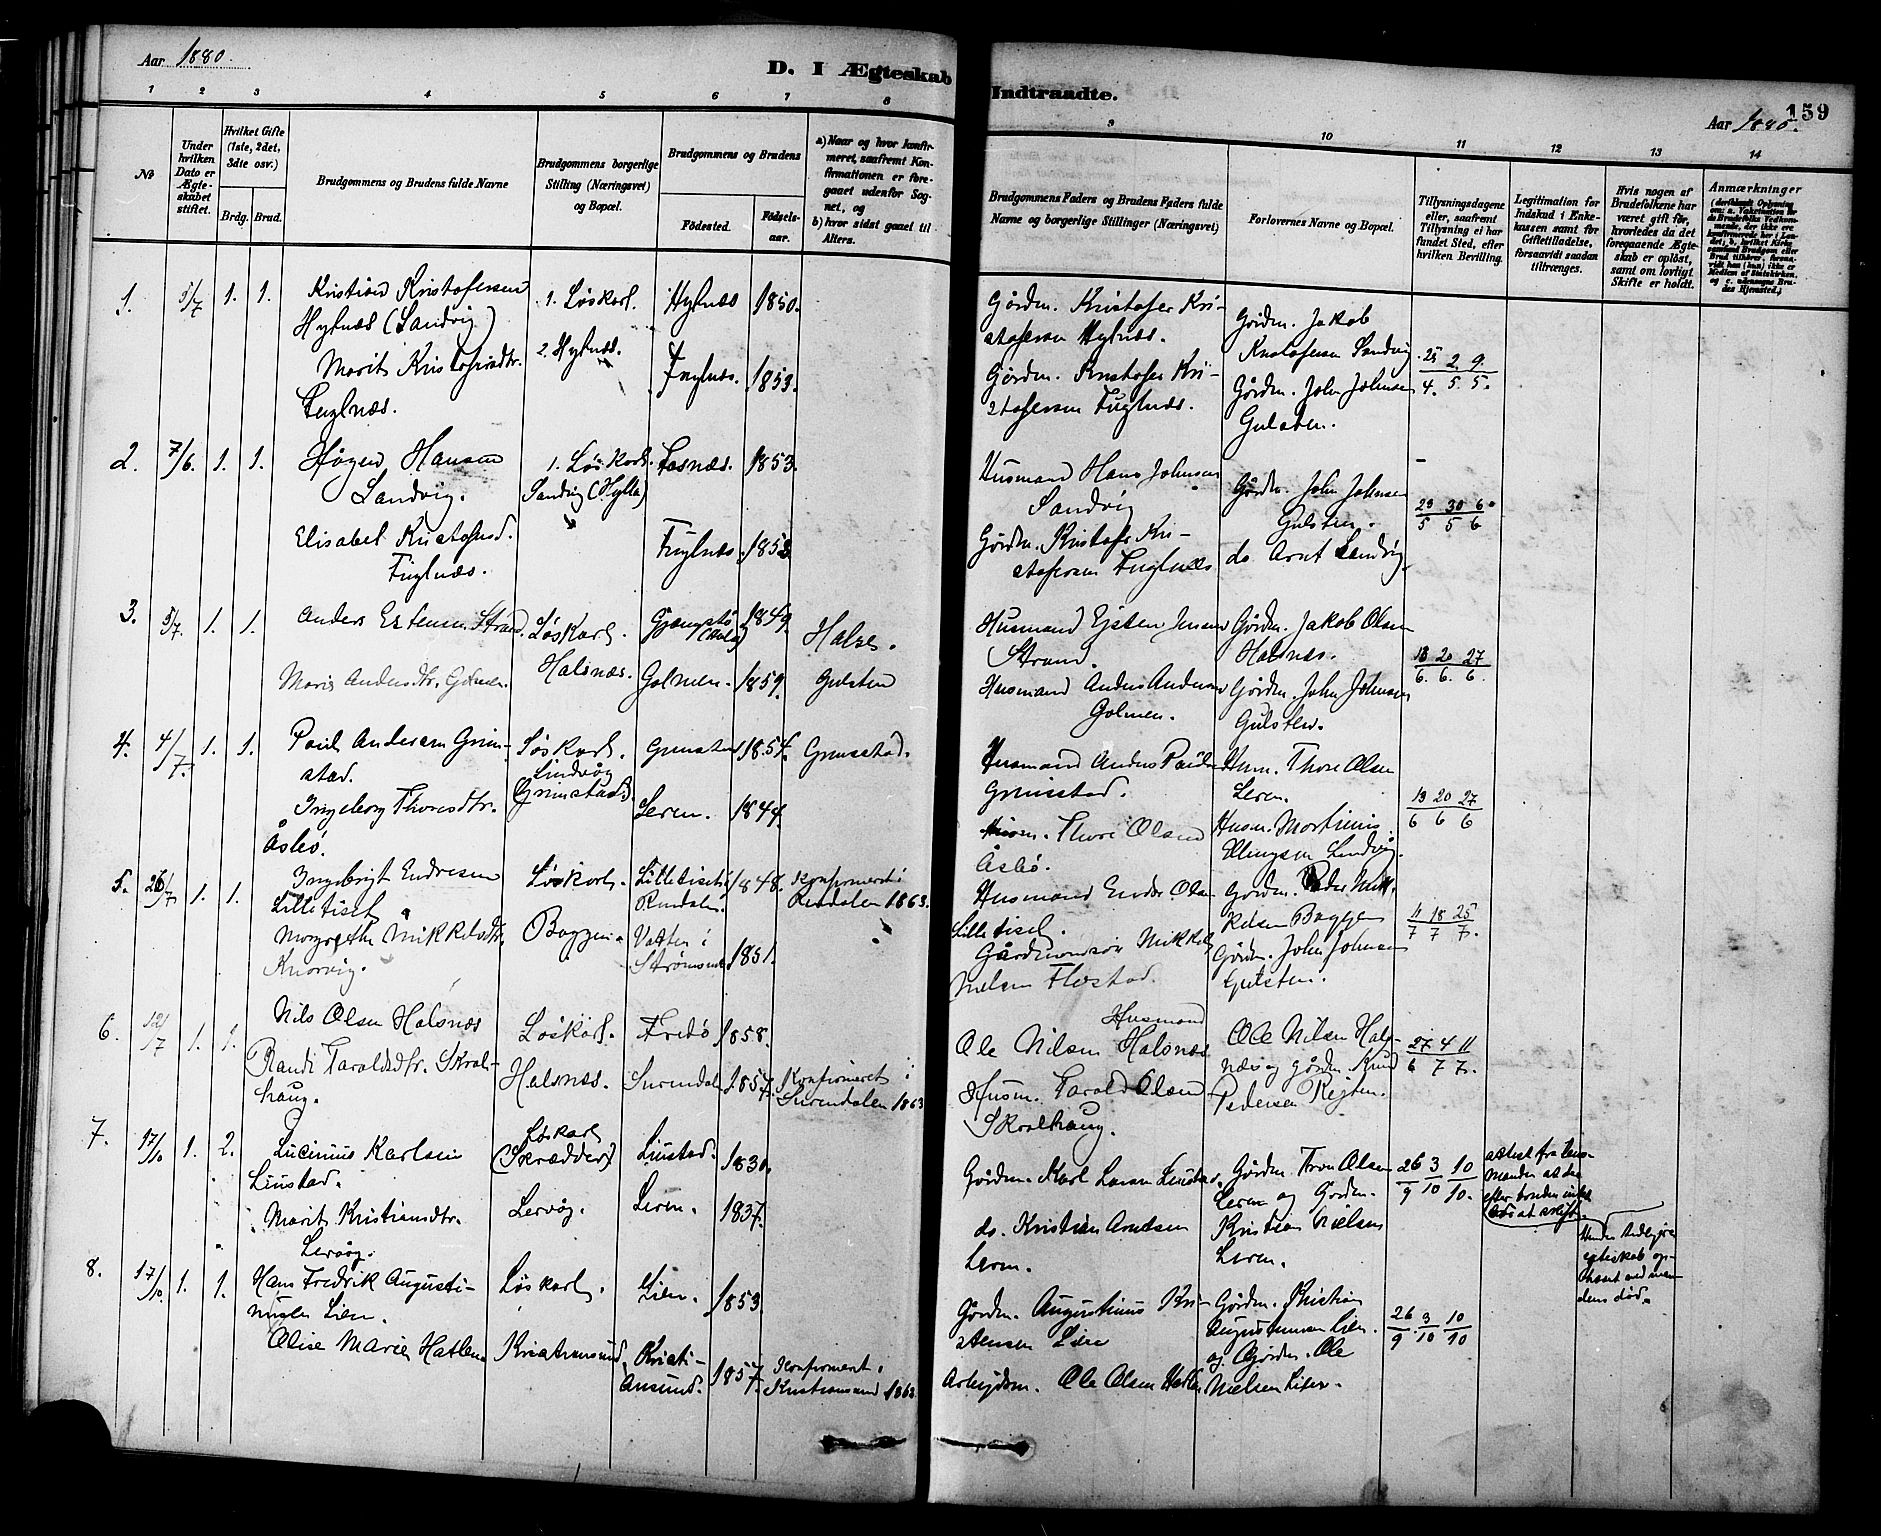 Aar 1880.
D. I Ægteskab Indtraadte.
159
Aar 1880.
1 2 3 4 5 6 7 8
9 10 11 12 13 14
No
Under hvilken Dato er Ægteskabet stiftet.
Hvilket Gifte (1ste, 2det, 3die osv.)
Brdg. Brud.
Brudgommens og Brudens fulde Navne
Brudgommens borgerlige Stilling (Næringsvei) og Bopæl.
Brudgommens og Brudens
Fødested.
Fødselsaar.
a) Naar og hvor konfirmeret, saafremt Konfirmationen er foregaaet udenfor Sognet, og
b) hvor sidst gaaet til Alters.
Brudgommens Faders og Brudens Faders fulde Navne og borgerlige Stillinger (Næringsvei)
Forlovernes Navne og Bopæl.
Tillysningsdagene eller, saafremt Tillysning ei har fundet Sted, efter hvilken Bevilling.
Legitimation for Indskud i Enkekassen samt for Giftetilladelse, forsaavidt saadan tiltrænges.
Hvis nogen af Brudefolkene har været gift før, hvorledes da det foregaaende Ægteskab er opløst, samt om lovligt Skifte er holdt.
Anmærkninger
1. 5/7 1. 1. Kristian Kristofersen
Hylnæs (Sandvig)
1. Løskarl.
2. Hylnæs.
Hylnæs 1850.
Marit Kristofersdtr.
Fuglnæs.
Fuglnæs. 1853.
Gårdm. Kristofer Kristofersen Hylnæs.
Gårdm. Kristofer Kristofersen Fuglnæs.
Gårdm. Jakob
Kristofersen Sandvig
Gårdm. John Johnsen
Gulsten.
25/4. 2/5. 9/5.
2. 7/6. 1. 1. Hågen Hansen
Sandvig.
1. Løskarl.
Sandvig (Hylla)
Fosnæs. 1853.
Elisabet Kristofersd.
Fuglnæs.
Fuglnæs. 1852
Husmand Hans Johnsen
Sandvig
Gårdm. Kristofer Kristofersen Fuglnæs
Gårdm. John Johnsen
Gulsten.
do Arnt Sandvig.
23/5 30/5 6/6
3. 5/7. 1. 1. Anders Estensen Strand.
Løskarl.
Halsnæs.
1849.
Halse.
Golmen. 1859. Gulsten
Husmand Ejsten Jensen
Strand.
Husmand Anders Andersen
Golmen.
Gårdm. Jakob Olsen
Halsnæs.
Gårdm. John Johnsen
Gulsten.
13/6. 20/6. 27/6.
4. 4/7. 1. 1. Paul Andersen Grimstad.
Løskarl.
Lindvåg
Grimstad.
Grimstad 1854. Grimstad.
Ingeborg Thoresdtr.
Åsbø.
Leren. 1844.
Husmand Anders Paulsen
Grimstad.
Husm. Thore Olsen
Åsbø.
Husm. Thore Olsen
Leren.
Husm. Mortinus
Ellingsen Lindvåg.
13/6 20/6 27/6
5. 26/7 1. 1. Ingebrigt Endresen
Lilletiset
Løskarl.
Baggen.
Lilletiset i
Rindalen.
1848. Konfirmeret i
Rindalen 1863.
Margrethe Mikkelsdtr.
Knorvig.
Vatten i
Strømsund 1851.
Husmand Endre Olsen
Lilletiset.
Gårdmandssøn Mikkel
Nielsen Flostad.
Gårdm. Peder Mikkelsen Baggen
Gårdm. John Johnsen
Gulsten.
11/7 18/7 25/7.
6. 12/7 1. 1. Nils Olsen Halsnæs
Løskarl.
Halsnæs.
Fredø 1858.
Randi Taraldsdtr. Skralhaug.
Surendalen 1857. Konfirmeret i
Surendalen 1863
Husmand
Ole Nilsen Halsnæs
Husm. Tarald Olsen
Skralhaug.
Ole Nilsen Halsnæs og gårdm. Knud
Pedersen Rejten.
27/6 4/7 11/7.
7. 17/10 1. 2. Lucinius Karlsen
Liustad.
Løskarl
(Skrædder)
Lervåg.
Liustad. 1830.
Marit Kristiansdtr.
Lervåg.
Leren. 1837.
Gårdm. Karl Larsen Liustad.
do. Kristian Arntsen
Leren.
Gårdm. Tron Olsen
Leren og Gårdm.
Kristian Nielsen
Leren.
26/9 3/10 10/10.
attest fra lensmanden at der
efter bonden intet
var at skifte.
Hendes tidligere
egteskab ophævet ved mandens død.
8. 17/10. 1. 1. Hans Fredrik Augustinusen Lien.
Løskarl.
Kristiansund.
Lien. 1853
Olise Marie Hatlen
Kristiansund. 1857. Konfirmeret i
Kristiansund 1863.
Gårdm. Augustinus Kristensen Lien
Arbejdsm. Ole Olsen Hatlen
Gårdm. Kristian
Augustinusen Lien.
og Gårdm. Ole
Nielsen Lien.
26/9. 3/10 10/10